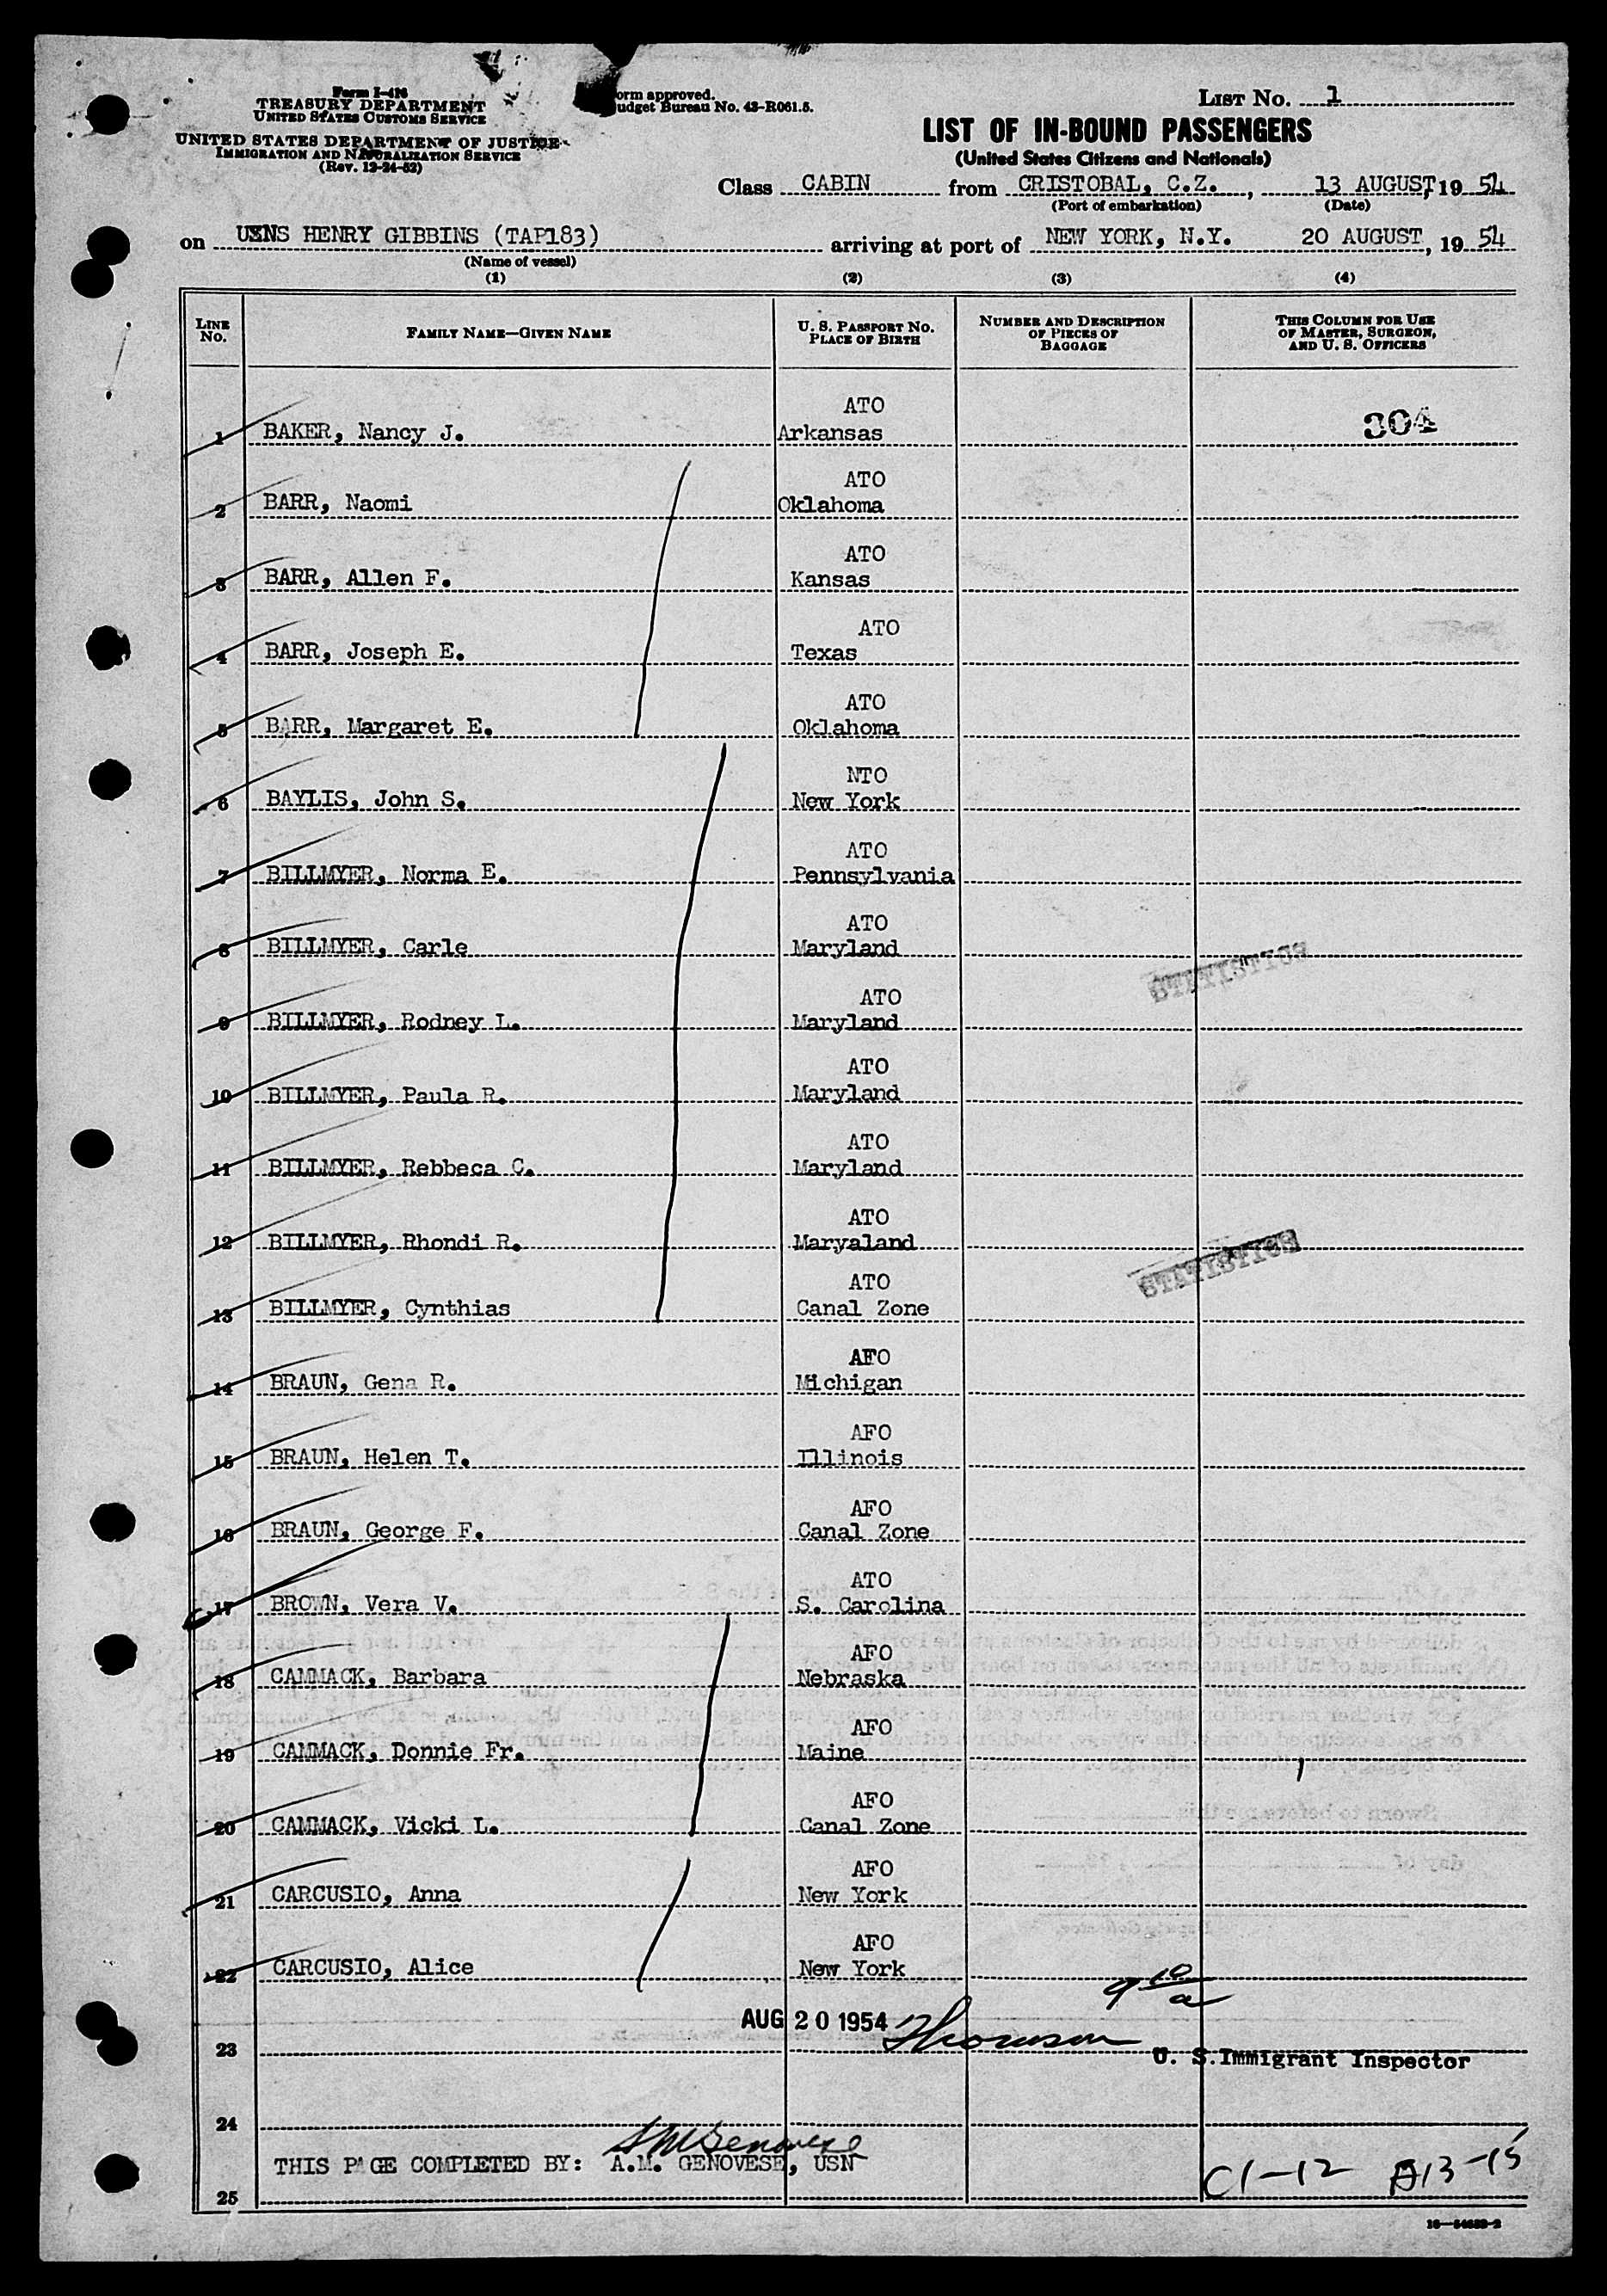 Form I-416
TREASURY DEPARTMENT
UNITED STATES CUSTOMS SERVICE
UNITED STATES DEPARTMENT OF JUSTICE
IMMIGRATION AND NATURALIZATION SERVICE
(Rev. 12-24-52)
orm approved.
udget Bureau No. 43-R061.5.
LIST No. 1
LIST OF IN-BOUND PASSENGERS
(United States Citizens and Nationals)
Class CABIN from CRISTOBAL, C.Z., 13 AUGUST, 19 54
(Port of embarkation) (Date)
on USNS HENRY GIBBINS (TAP183) arriving at port of NEW YORK, N.Y. 20 AUGUST, 19 54
(Name of vessel)
(1) (2) (3) (4)
LINE No. FAMILY NAME—GIVEN NAME U. S. PASSPORT NO. PLACE OF BIRTH NUMBER AND DESCRIPTION OF PIECES OF BAGGAGE THIS COLUMN FOR USE OF MASTER, SURGEON, AND U. S. OFFICERS
ATO
1 BAKER, Nancy J. Arkansas 304
ATO
2 BARR, Naomi Oklahoma
ATO
3 BARR, Allen F. Kansas
ATO
4 BARR, Joseph E. Texas
ATO
5 BARR, Margaret E. Oklahoma
NTO
6 BAYLIS, John S. New York
ATO
7 BILLMYER, Norma E. Pennsylvania
ATO
8 BILLMYER, Carle Maryland
STATISTICS
ATO
9 BILLMYER, Rodney L. Maryland
ATO
10 BILLMYER, Paula R. Maryland
ATO
11 BILLMYER, Rebbeca C. Maryland
ATO
12 BILLMYER, Rhondi R. Maryaland
STATISTICS
ATO
13 BILLMYER, Cynthias Canal Zone
AFO
14 BRAUN, Gena R. Michigan
AFO
15 BRAUN, Helen T. Illinois
AFO
16 BRAUN, George F. Canal Zone
ATO
17 BROWN, Vera V. S. Carolina
AFO
18 CAMMACK, Barbara Nebraska
AFO
19 CAMMACK, Donnie Fr. Maine
AFO
20 CAMMACK, Vicki L. Canal Zone
AFO
21 CARCUSIO, Anna New York
AFO
22 CARCUSIO, Alice New York
9 10 a
AUG 20 1954 Thomson
23 U. S. Immigrant Inspector
24
AMGenovese
THIS PAGE COMPLETED BY: A.M. GENOVESE, USN
C1-12 A13-15
25
16—54682-2